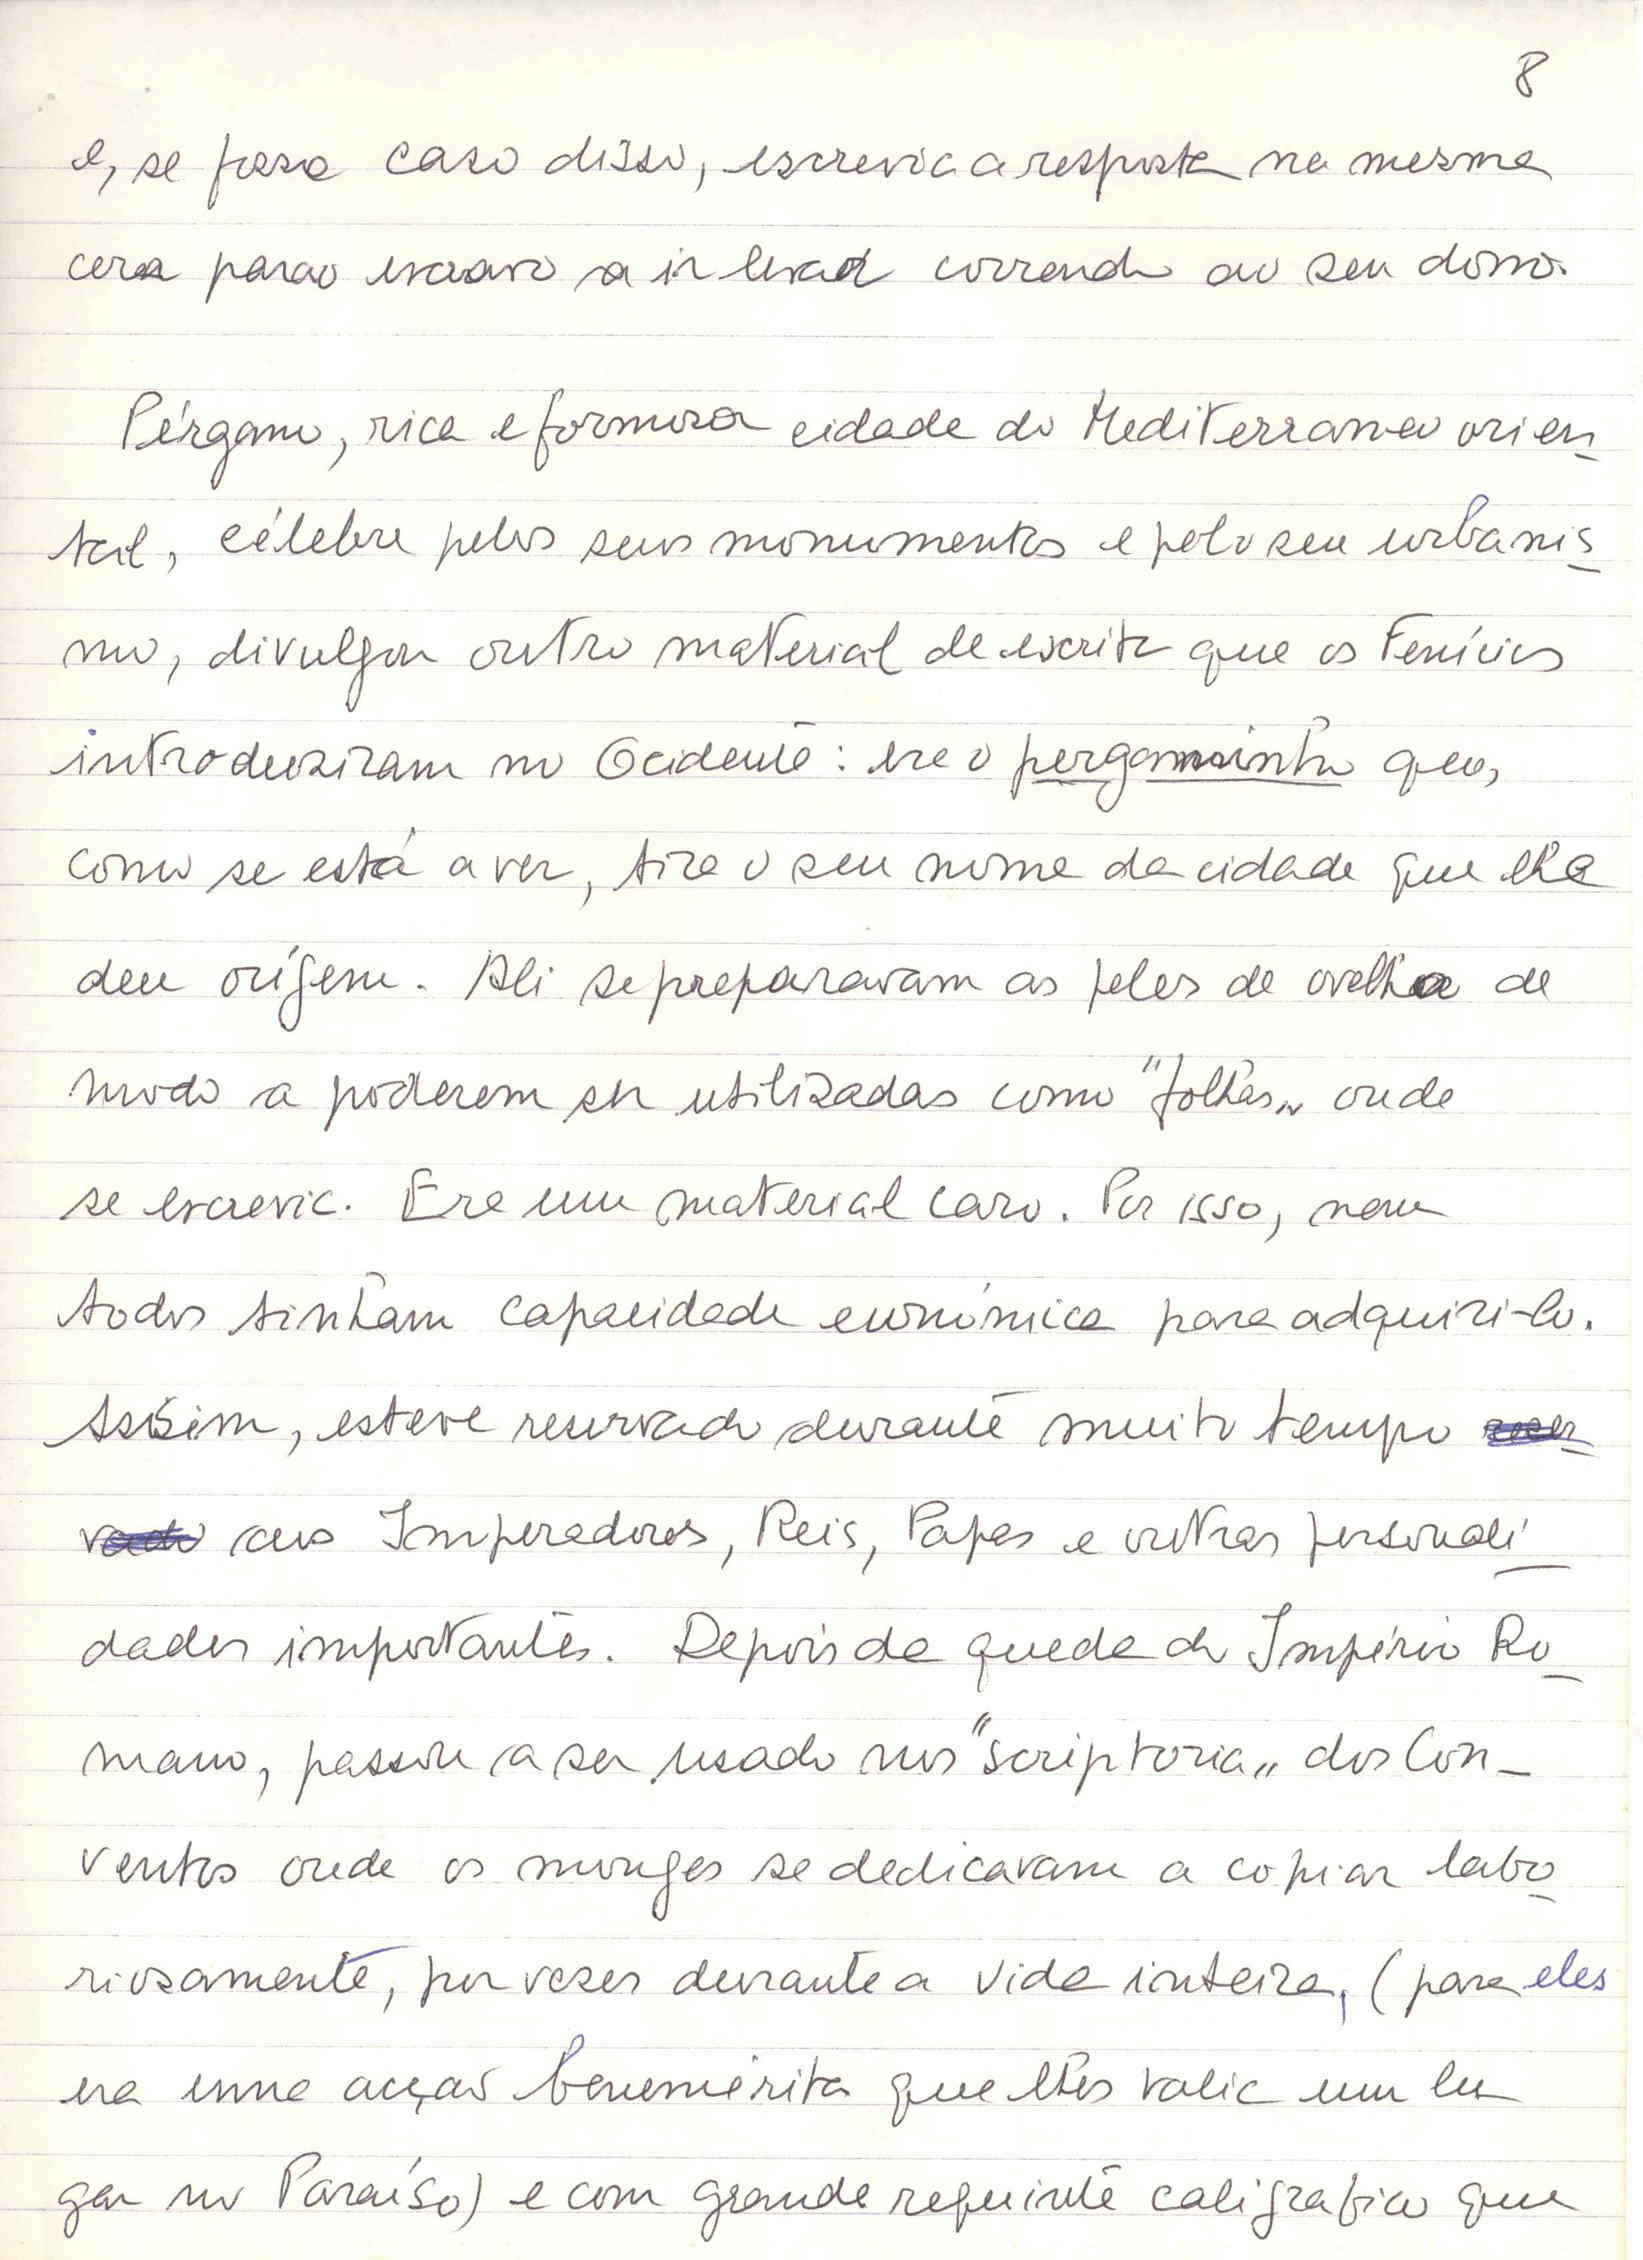 8
e, se fosse caso disso, escrevia a resposta na mesma
cera para o escravo a ir levar correndo ao seu dono.
Pérgamo, rica e formosa cidade do Mediterraneo orien
tal, célebre pelos seus monumentos e pelo seu urbanis
mo, divulgou outro material de escrita que os Fenícios
introduziram no Ocidente: era o pergaminho que,
como se está a ver, tira o seu nome da cidade que lhe
deu orígem. Ali se preparavam as peles de ovelha de
modo a poderem ser utilizadas como "folhas" onde
se escrevia. Era um material caro. Por isso, nem
todos tinham capacidade económica para adquiri-lo.
Assim, esteve reservado durante muito tempo reser
vado aos Imperadores, Reis, Papas e outras personali
dades importantes. Depois da queda do Império Ro
mano, passou a ser usado nos "scriptoria" dos Con-
ventos onde os monges se dedicavam a copiar labo
riosamente, por vezes durante a vida inteira, (para eles
era uma acção benemérita que lhes valia um lu
gar no Paraíso) e com grande requinte caligrafico que